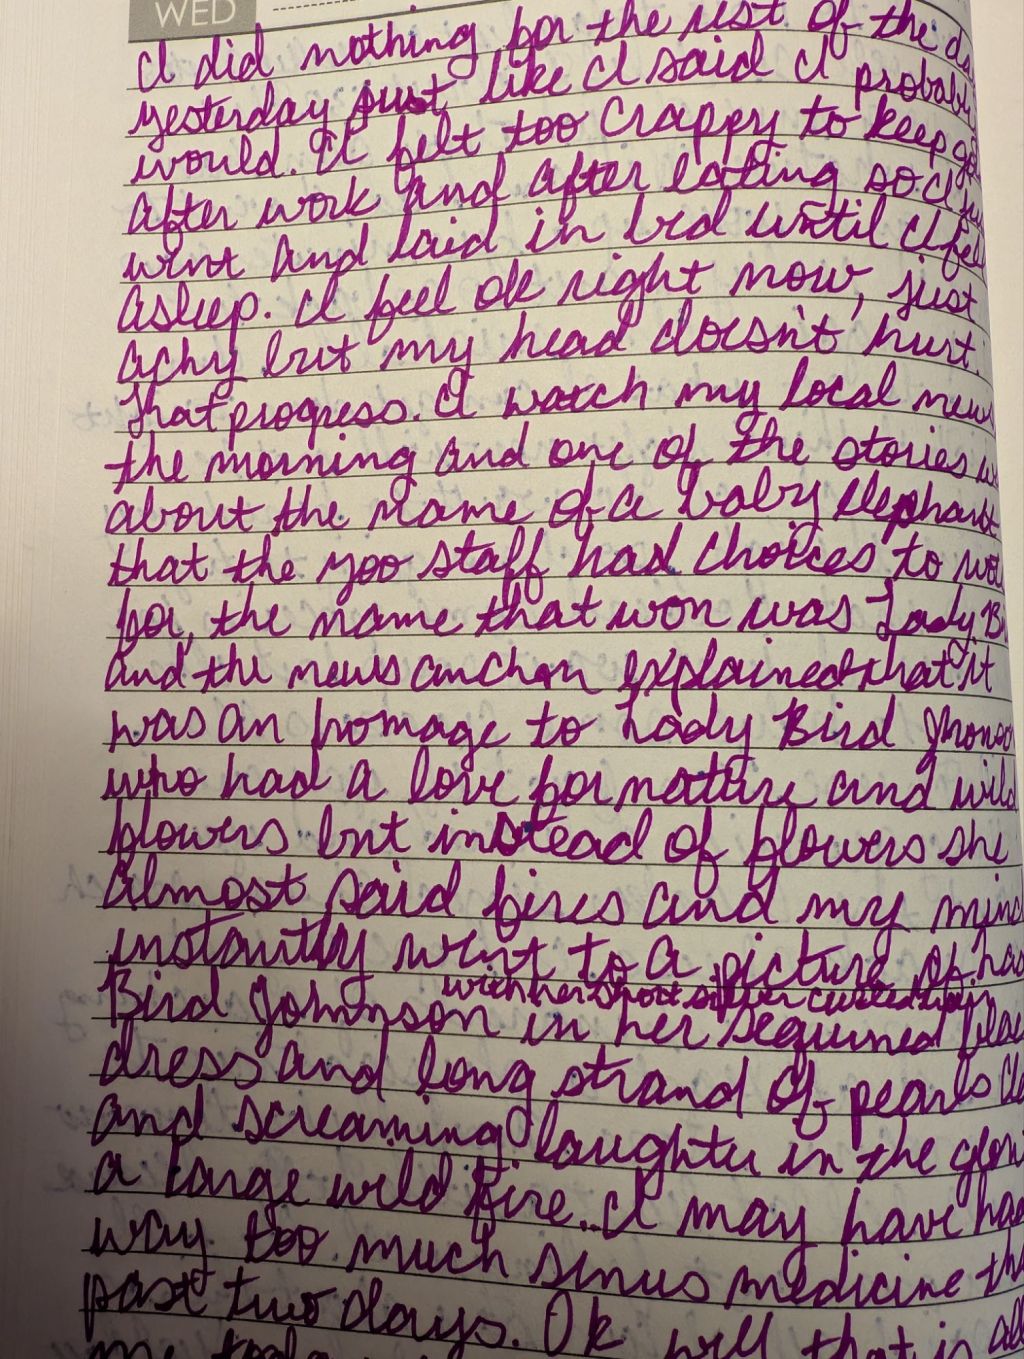 WED
I did nothing for the rest of the
yesterday just like I said I probably
would. I felt too crappy to keep
after work and after eating so I
went and laid in bed until I fell
asleep. I feel ok right now, just
achy but my head doesn't hurt.
That progress. I watch my local news
the morning and one of the stories
about the name of a baby elephant
that the zoo staff had choices to
for, the name that won was Lady
and the news anchor explained that it
was an homage to Lady Bird Jhonso
who had a love for nature and wild
flowers but instead of flowers she
almost said fires and my mind
instantly went to a picture of
with her short silver curled hair
Bird Johnnson in her sequined
dress and long strand of pearls
and screaming laughter in the
a large wild fire... I may have had
way too much sinus medicine the
past two days. Ok well that is all